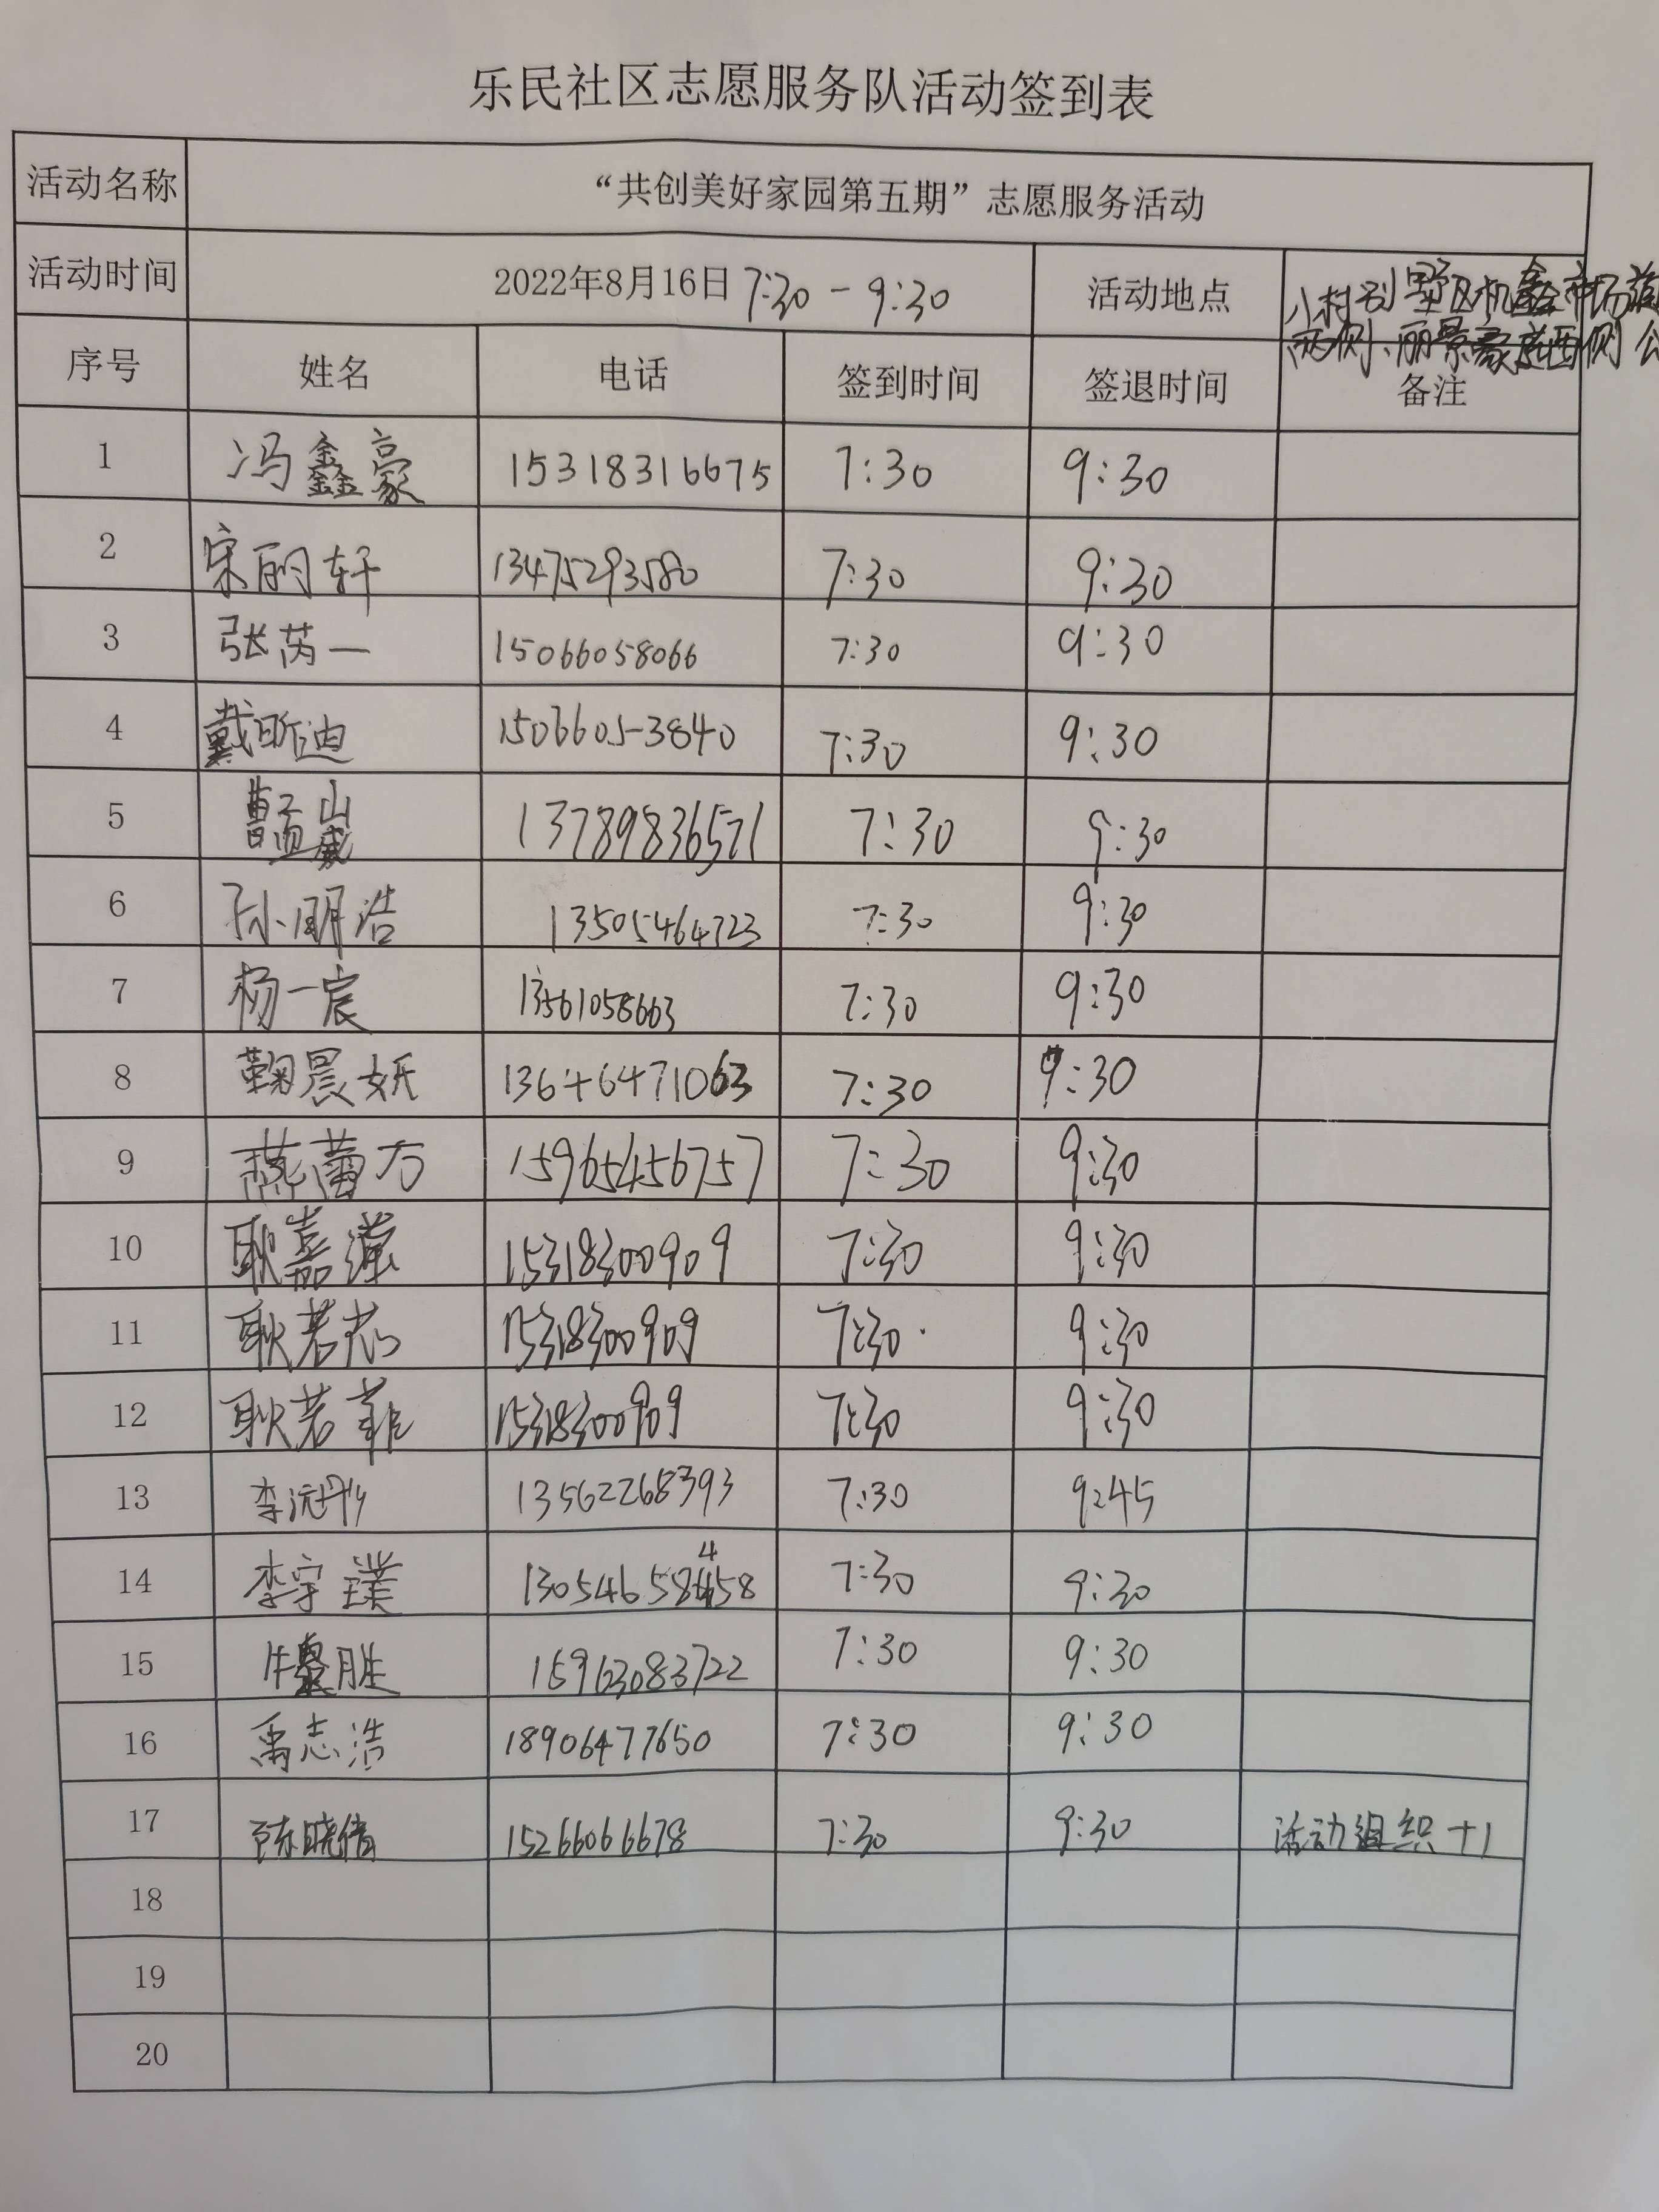 乐民社区志愿服务队活动签到表
活动名称 “共创美好家园第五期”志愿服务活动
活动时间 2022年8月16日 7:30-9:30 活动地点 八村别墅区机鑫市场
两侧、丽景豪庭西侧公
序号 姓名 电话 签到时间 签退时间 备注
1 冯鑫豪 15318316675 7:30 9:30
2 宋丽轩 13475293580 7:30 9:30
3 张芮一 15066058066 7:30 9:30
4 戴昕迪 1506605-3840 7:30 9:30
5 曹孟崴 13789836571 7:30 9:30
6 孙明浩 13505464723 7:30 9:30
7 杨一宸 13561058663 7:30 9:30
8 鞠晨妧 13646471063 7:30 9:30
9 燕蕾方 15965456757 7:30 9:30
10 耿嘉 15318300909 7:30 9:30
11 耿若 15318300909 7:30 9:30
12 耿若菲 15318300909 7:30 9:30
13 李沅 13562268393 7:30 9:45
14 李宇璞 13054658458 7:30 9:30
15 胜 15963083722 7:30 9:30
16 禹志浩 18906477650 7:30 9:30
17 陈晓倩 15266066678 7:30 9:30 活动组织+1
18
19
20